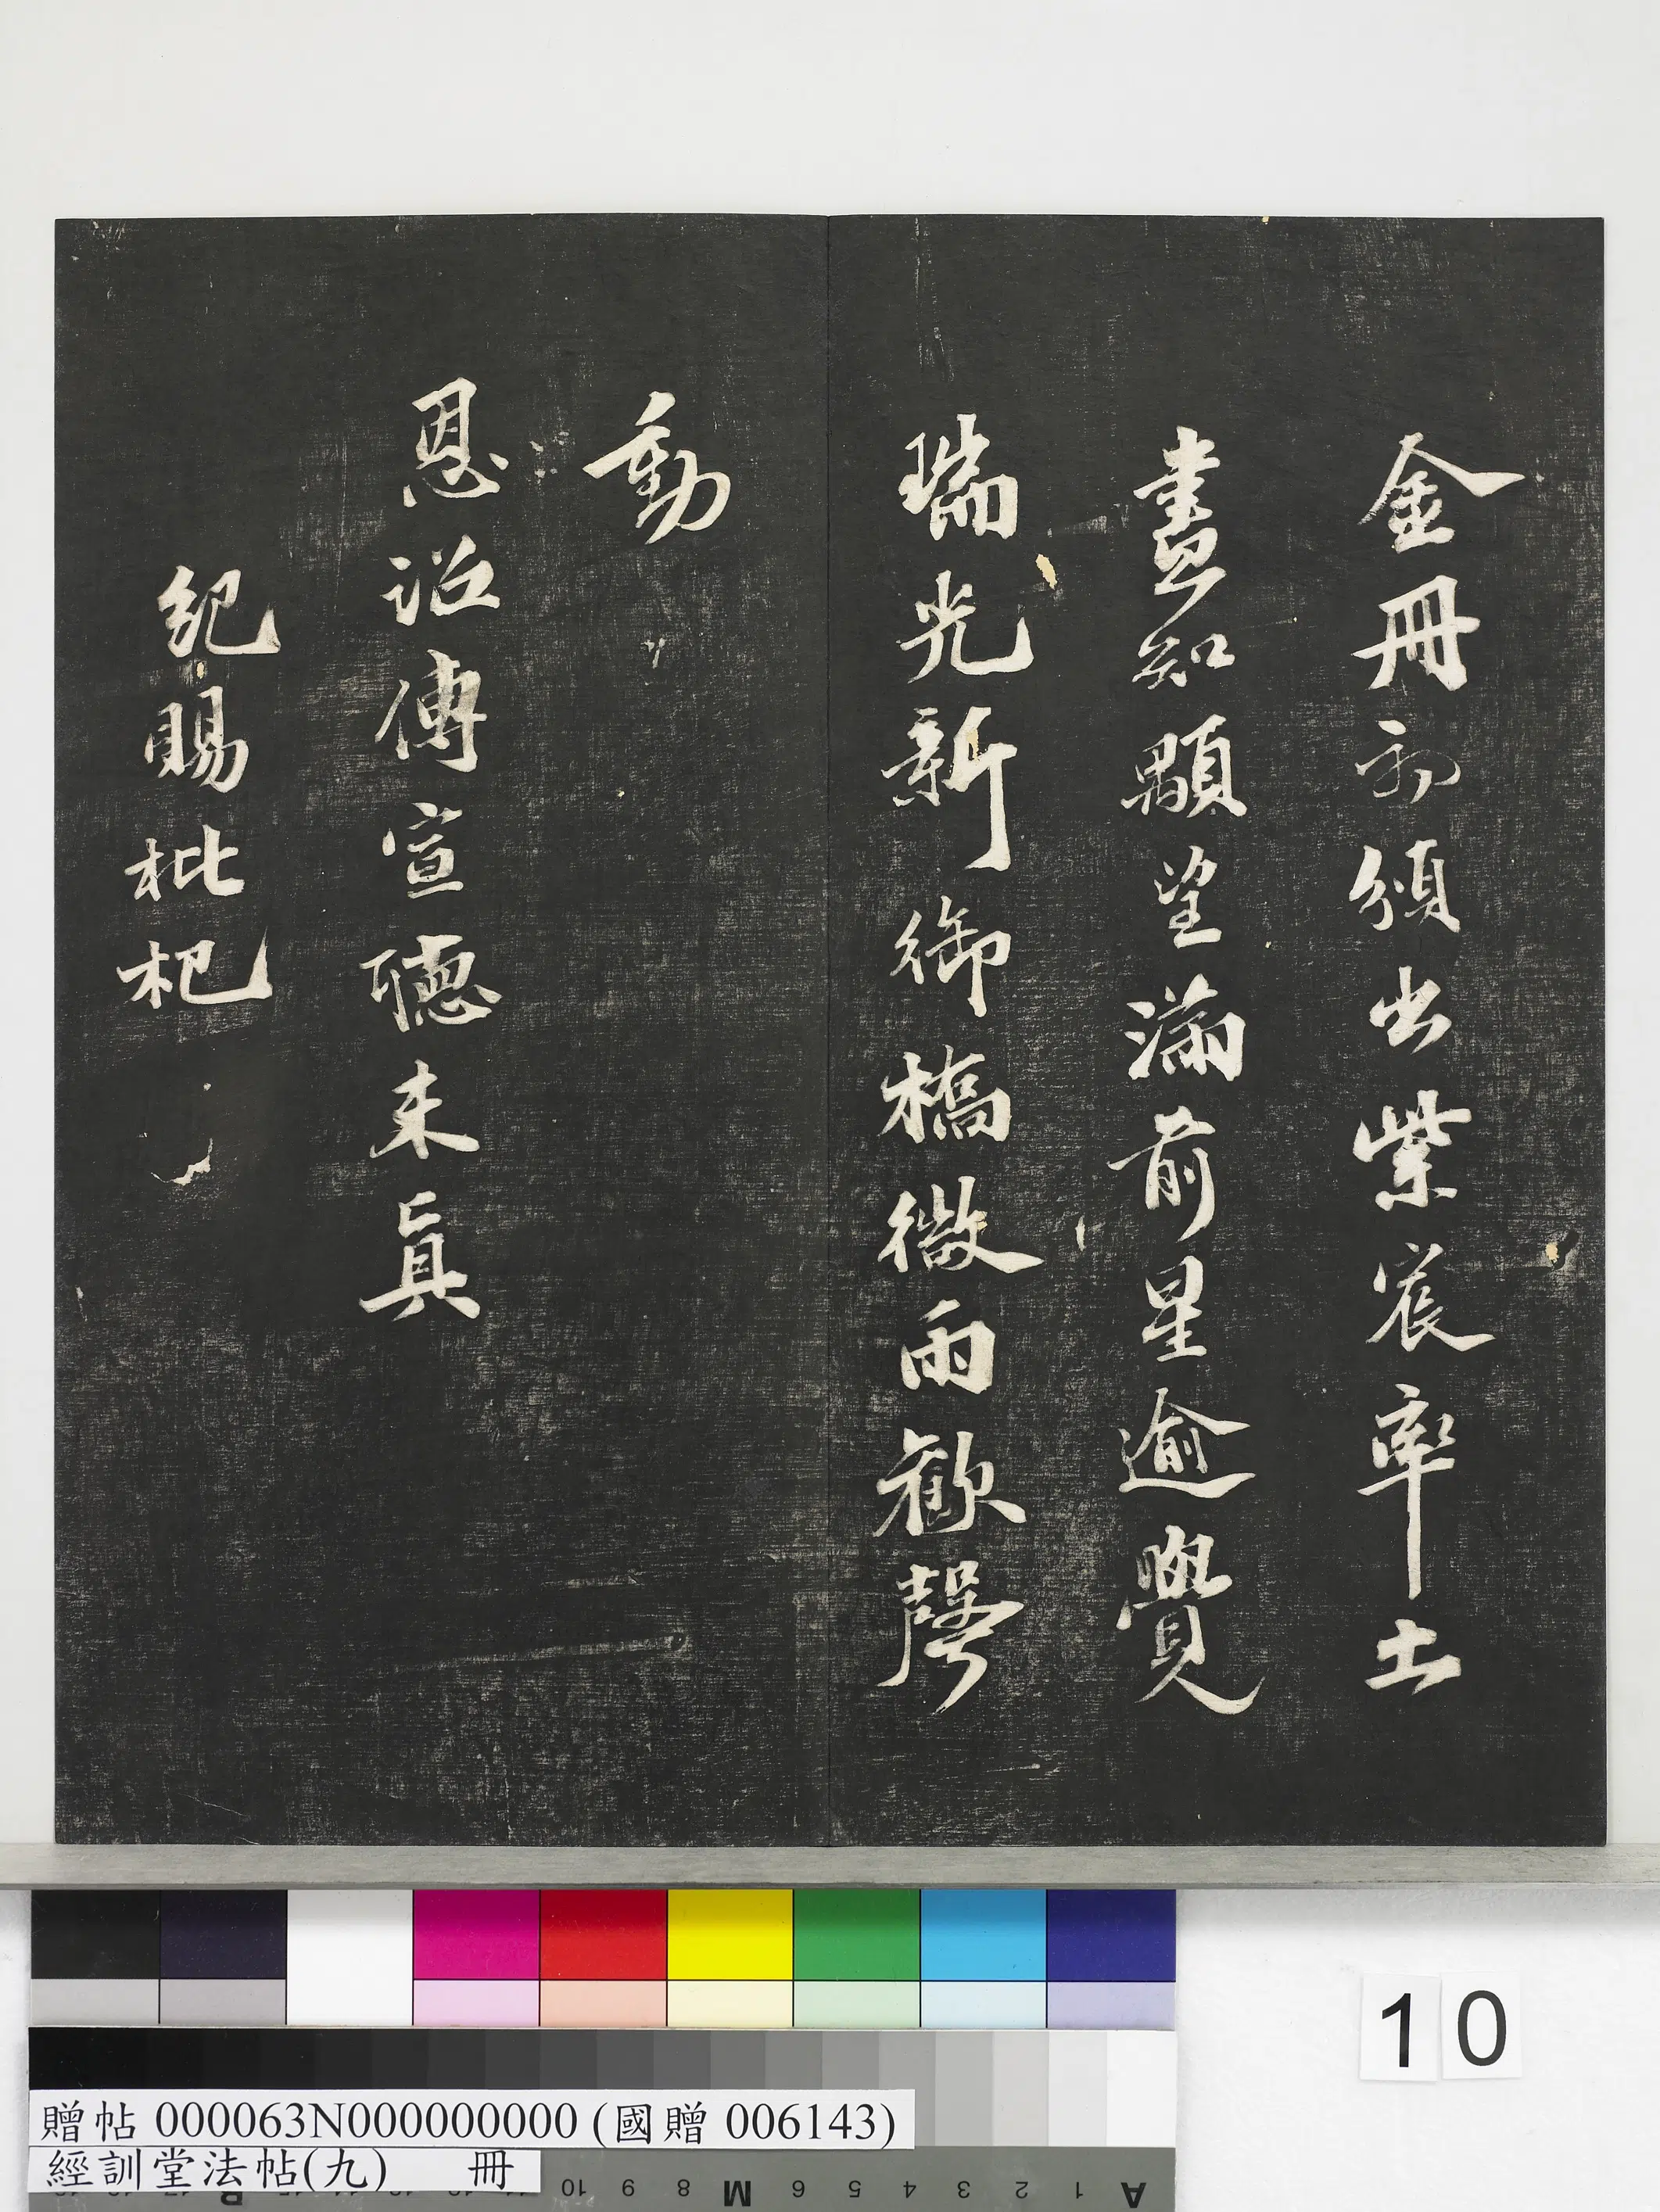 金冊初頒出紫宸率土
盡知顒望滿前星逾覺
瑞光新御橋微雨歡聲
動
恩詔傳宣聽未真
紀賜枇杷
10
贈帖 000063N000000000 (國贈 006143)
經訓堂法帖(九) 冊
10 9 8 M 6 5 4 3 2 1 A